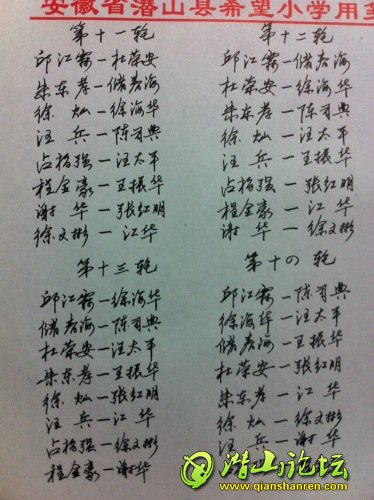 安徽省潜山县希望小学用
第十一轮
邱江霖—杜荣安
朱东孝—储孝海
徐灿—徐海华
汪兵—陈习典
汪太平
程金豪—王振华
谢华—张红明
徐文彬—江华
第十二轮
邱江霖—储孝海
杜荣安—徐海华
朱东孝—陈习典
徐灿—汪太平
汪兵—王振华
张红明
程金豪—江华
谢华—徐文彬
第十三轮
邱江霖—徐海华
储孝海—陈习典
杜荣安—汪太平
朱东孝—王振华
徐灿—张红明
汪兵—江华
徐文彬
程金豪—谢华
第十四轮
邱江霖—陈习典
徐海华—汪太平
储孝海—王振华
杜荣安—张红明
朱东孝—江华
徐灿—徐文彬
汪兵—谢华
潜山论坛
www.qianshanren.com